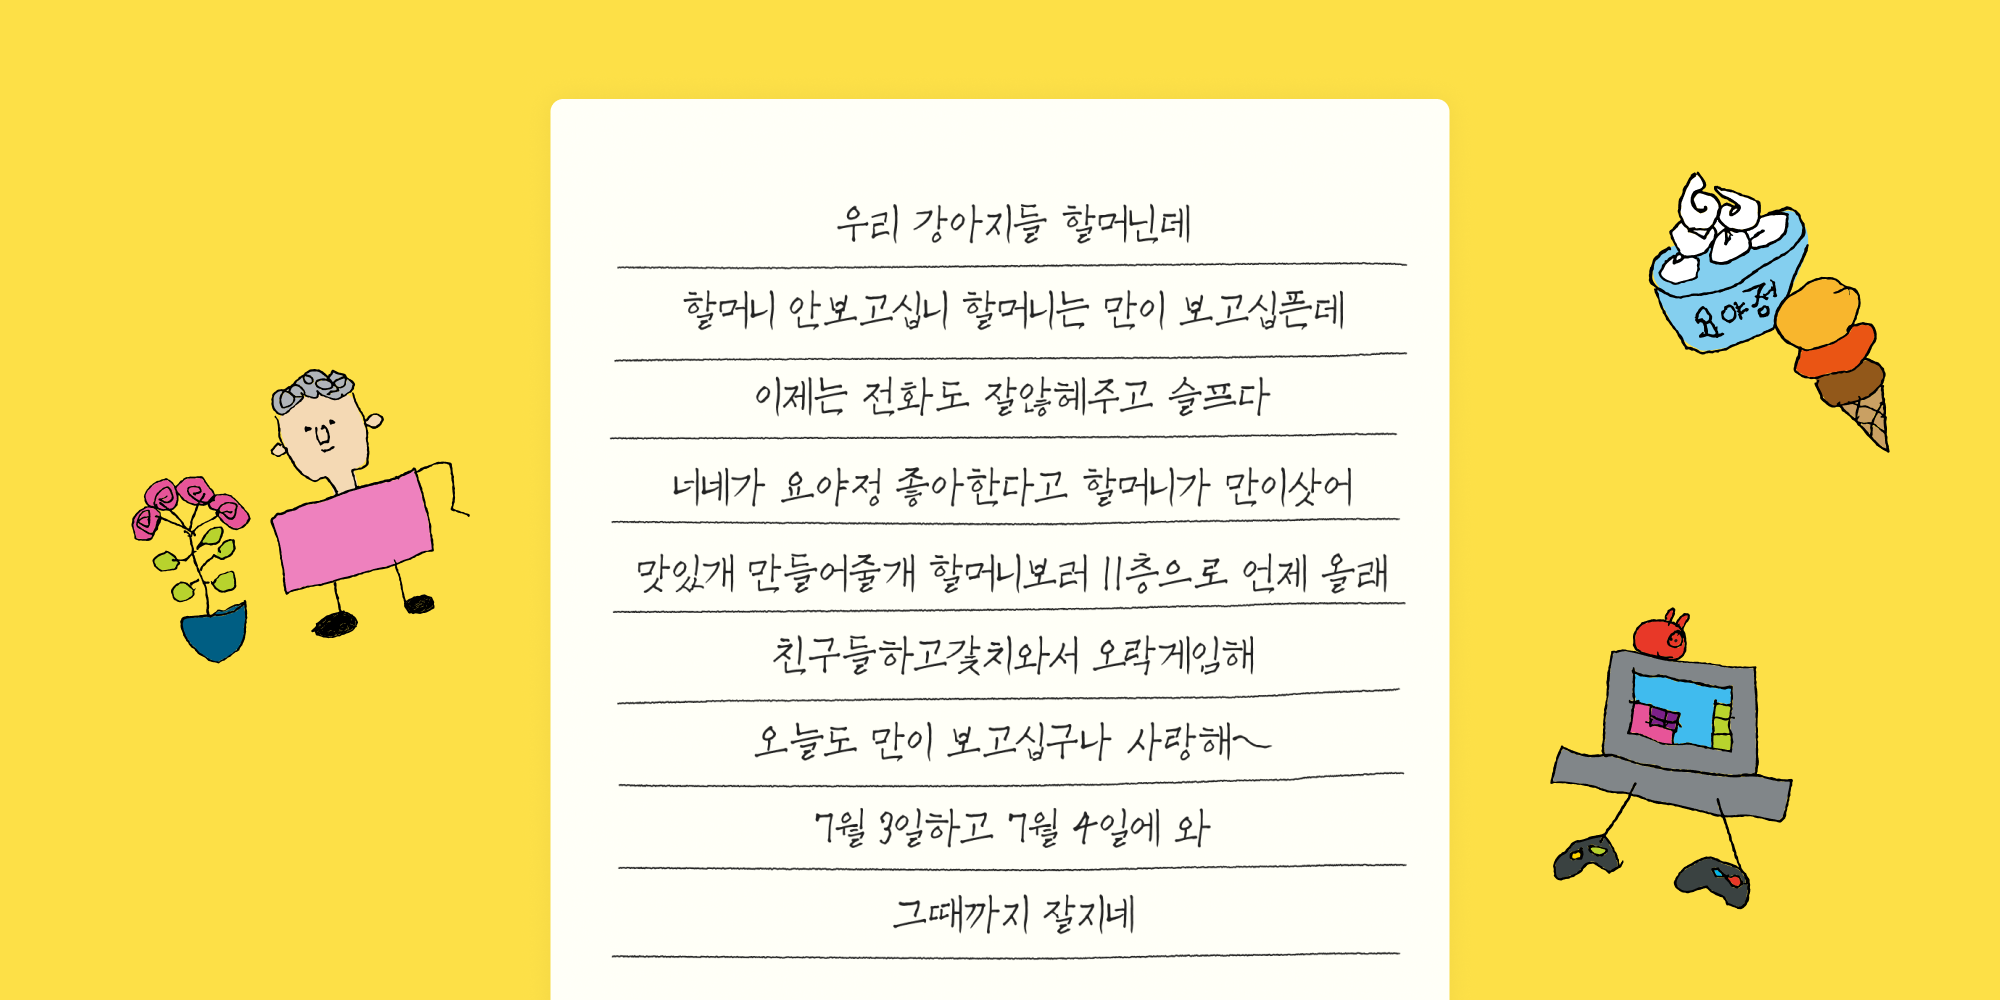 우리 강아지들 할머닌데
할머니 안보고십니 할머니는 만이 보고십픈데
이제는 전화도 잘않헤주고 슬프다
너네가 요야정 좋아한다고 할머니가 만이삿어
맛있개 만들어줄개 할머니보러 11층으로 언제 올래
친구들하고갗치와서 오락게임해
오늘도 만이 보고십구나 사랑해~
7월 3일하고 7월 4일에 와
그때까지 잘지네
요야정